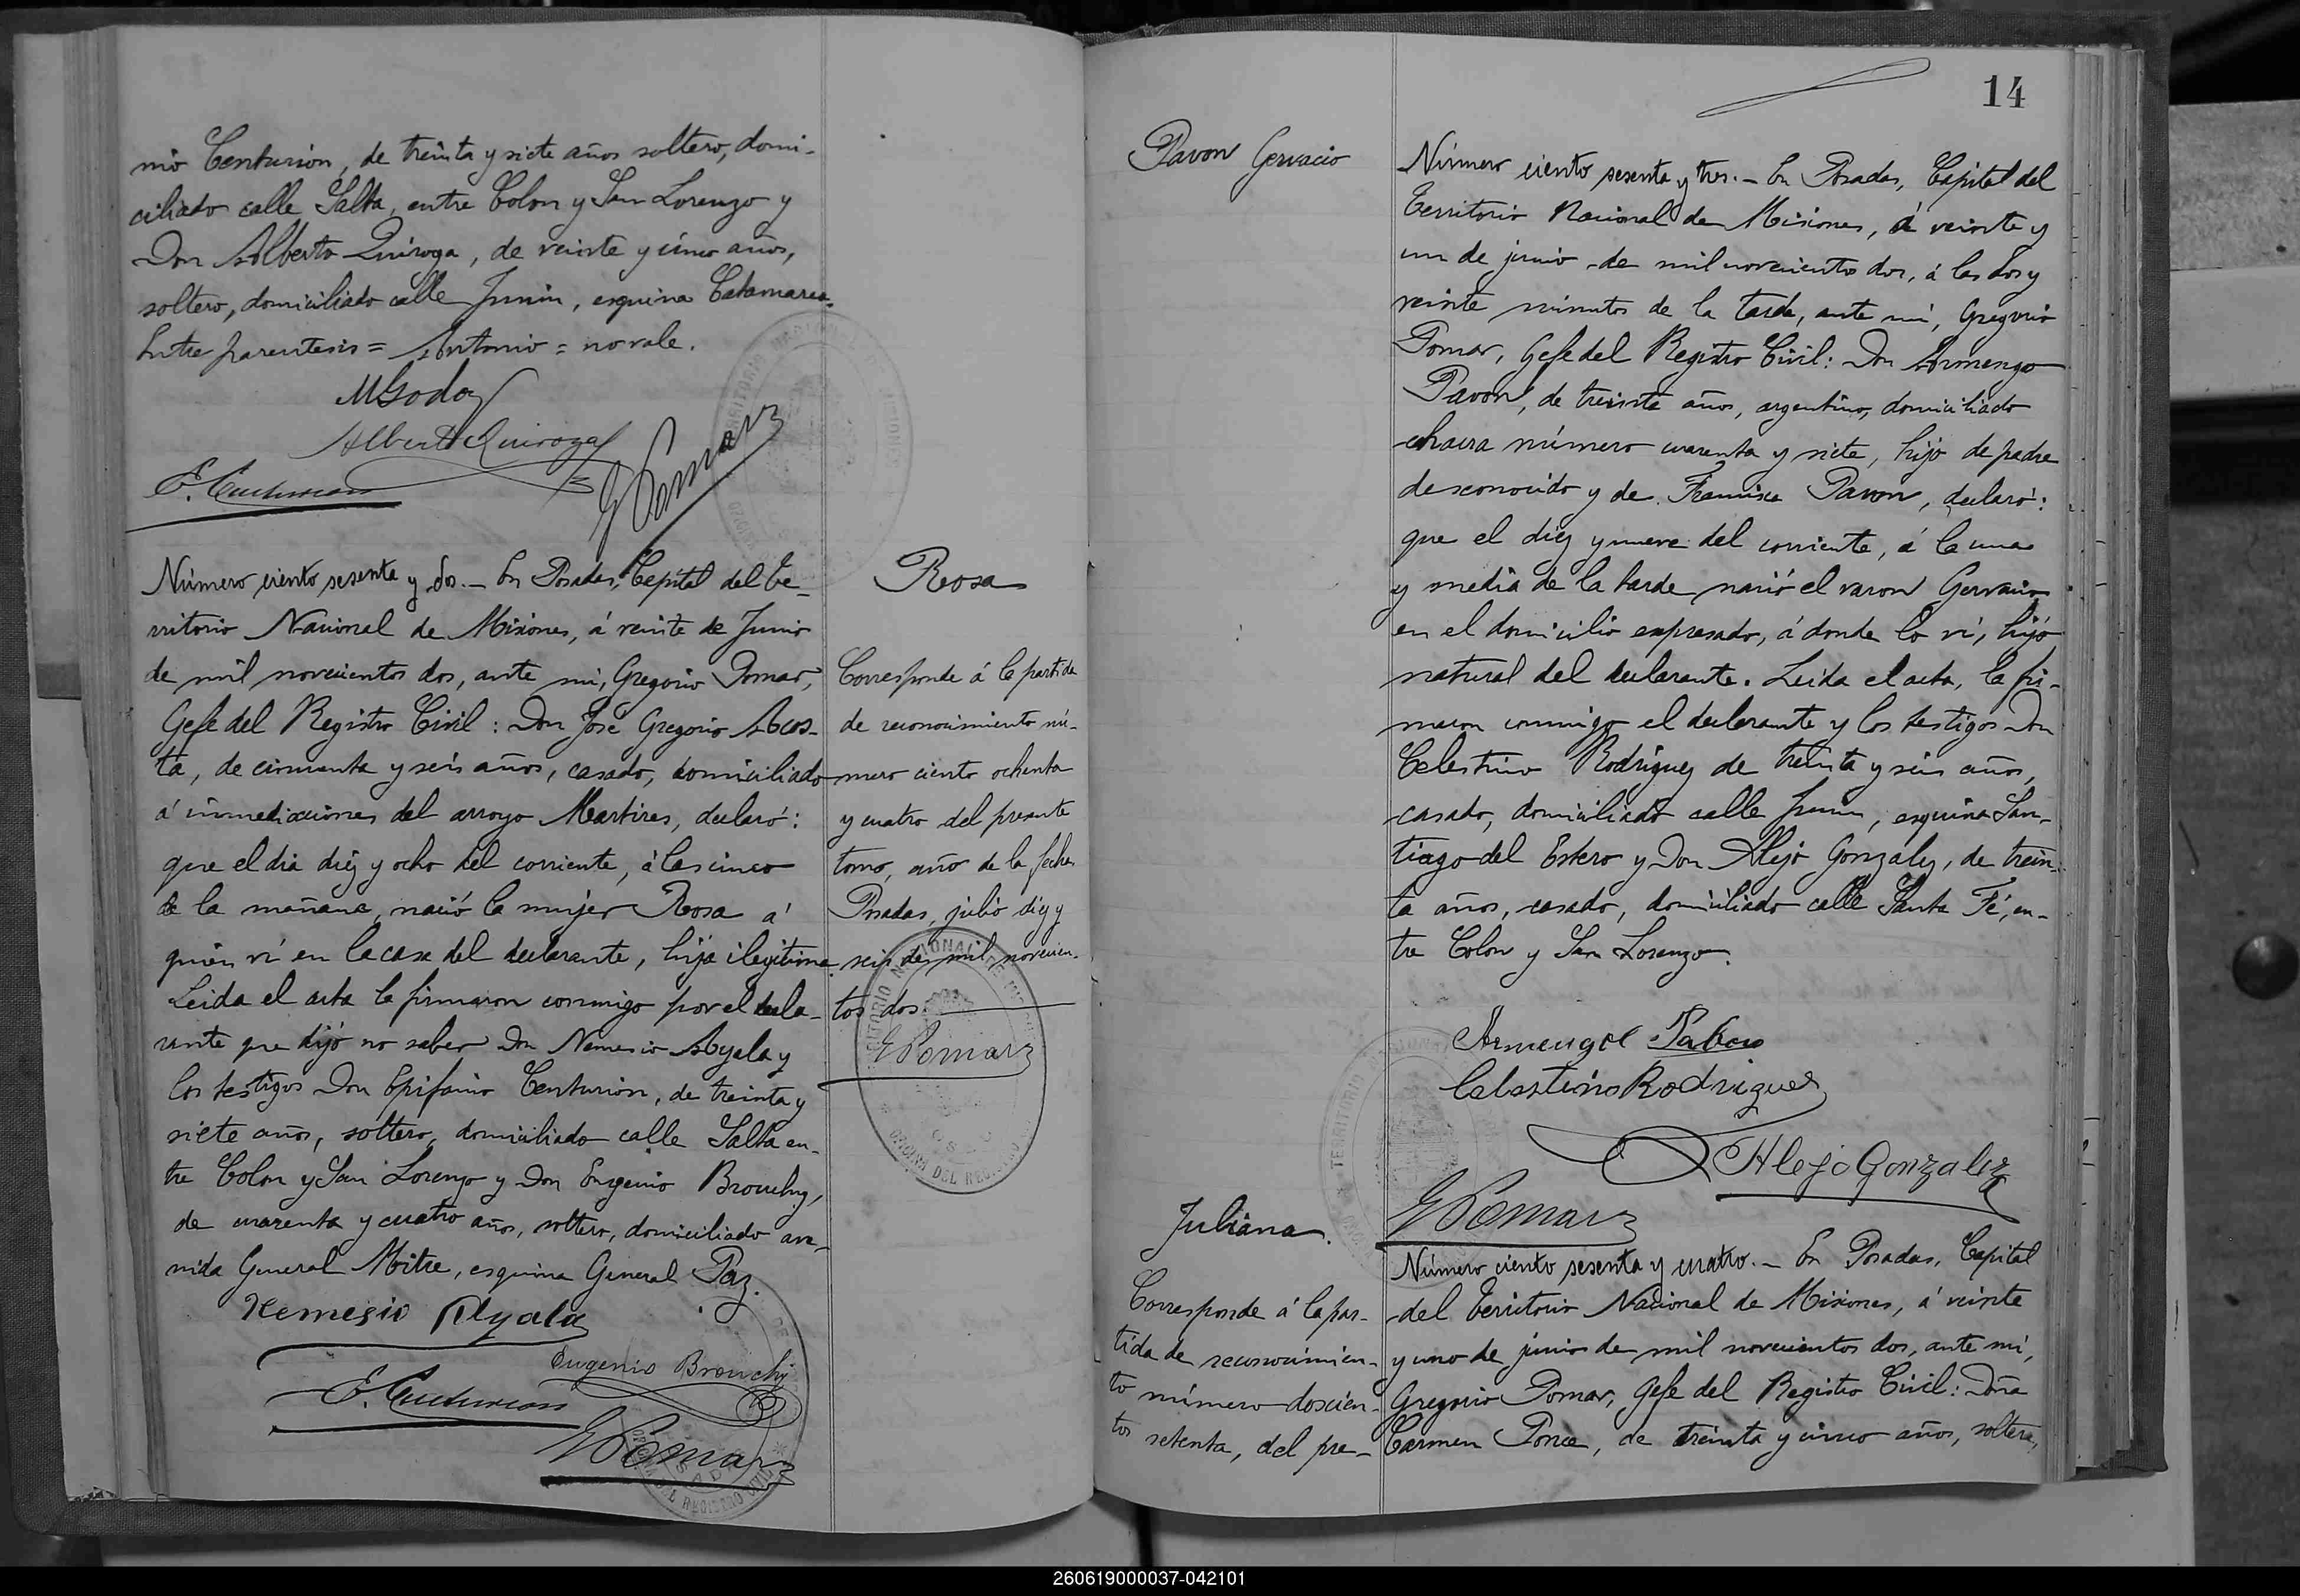 nio Centurion, de treinta y siete años soltero, domi-
ciliado calle Salta, entre Colon y San Lorenzo y
Don Alberto Quiroga, de veinte y cinco años,
soltero, domiciliado calle Junin, esquina Catamarca.
Entre parentesis = Antonio = no vale.
MGodoy
Alberto Quiroga
E. Centurion
G Pomar
Número ciento sesenta y dos. _ En Posadas, Capital del Te-
rritorio Nacional de Misiones, á veinte de Junio
de mil novecientos dos, ante mi, Gregorio Pomar,
Gefe del Registro Civil: Don José Gregorio Acos-
ta, de cincuenta y seis años, casado, domiciliado
á inmediaciones del arroyo Martires, declaró:
que el dia diez y ocho del corriente, á las cinco
de la mañana, nació la mujer Rosa á
quien ví en la casa del declarante, hija ilegitima.
Leida el acta la firmaron conmigo por el decla-
rante que dijó no saber Don Nemesio Ayala y
los testigos Don Epifanio Centurion, de treinta y
siete años, soltero, domiciliado calle Salta en-
tre Colon y San Lorenzo y Don Eugenio
de cuarenta y cuatro años, soltero, domiciliado ave-
nida General Mitre, esquina General Paz.
Nemesio Ayala
Eugenio
E. Centurion
G Pomar
Rosa
Corresponde á la partida
de reconocimiento nú-
mero ciento ochenta
y cuatro del presente
tomo, año de la fecha
Posadas, julio diez y
seis de mil novecien-
tos dos
G Pomar
14
Pavon Gervacio
Número ciento sesenta y tres. _ En Posadas, Capital del
Territorio Nacional de Misiones, á veinte y
un de junio de mil novecientos dos, á las dos y
veinte minutos de la tarde, ante mi, Gregorio
Pomar, Gefe del Registro Civil: Don Armengo
Pavon, de treinta años, argentino, domiciliado
chacra número cuarenta y siete, hijo de padre
desconocido y de Francisca Pavon, declaró:
que el diez y nueve del corriente, á la una
y media de la tarde nació el varon Gervacio
en el domicilio expresado, á donde lo ví, hijo
natural del declarante. Leida el acta, la fir-
maron conmigo el declarante y los testigos Don
Celestino Rodriguez de treinta y seis años,
casado, domiciliado calle Junin, esquina San-
tiago del Estero y Don Alejo Gonzalez, de trein-
ta años, casado, domiciliado calle Santa Fé, en-
tre Colon y San Lorenzo.
Armengol Pabon
Celestino Rodriguez
Alejo Gonzalez
G Pomar
Juliana.
Corresponde á la par-
tida de reconocimien-
to número doscien-
tos setenta, del pre-
Número ciento sesenta y cuatro. _ En Posadas, Capital
del Territorio Nacional de Misiones, á veinte
y uno de junio de mil novecientos dos, ante mi,
Gregorio Pomar, Gefe del Registro Civil: Doña
Carmen Ponce, de treinta y cinco años, soltera,
260619000037-042101